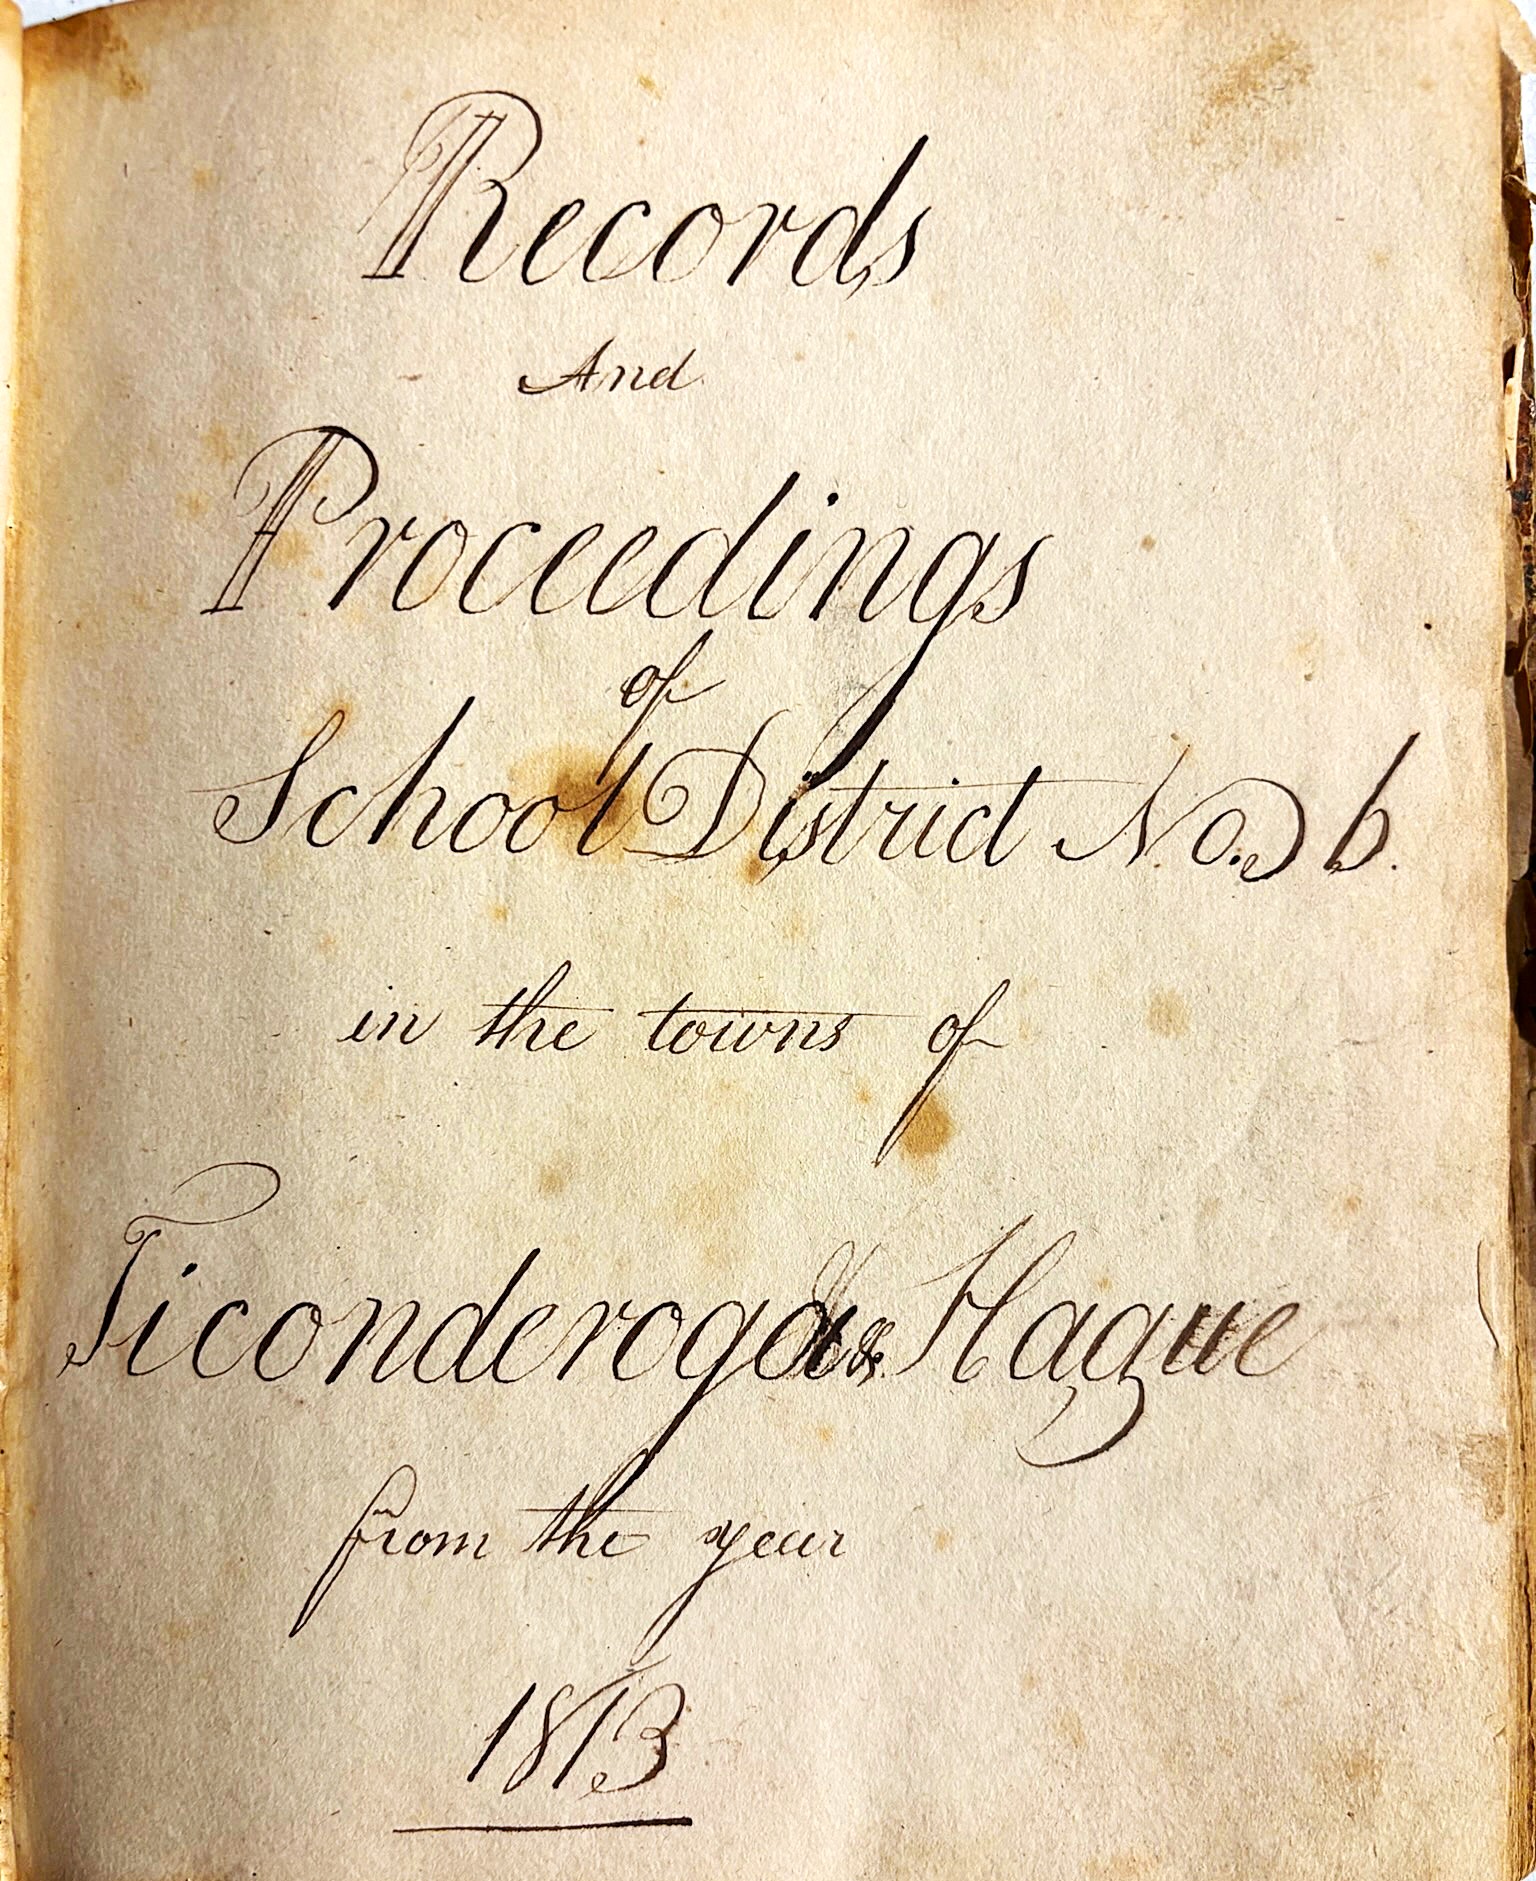 Records
And
Proceedings
of
School District No. 6.
in the towns of
Ticonderoga & Hague
from the year
1813